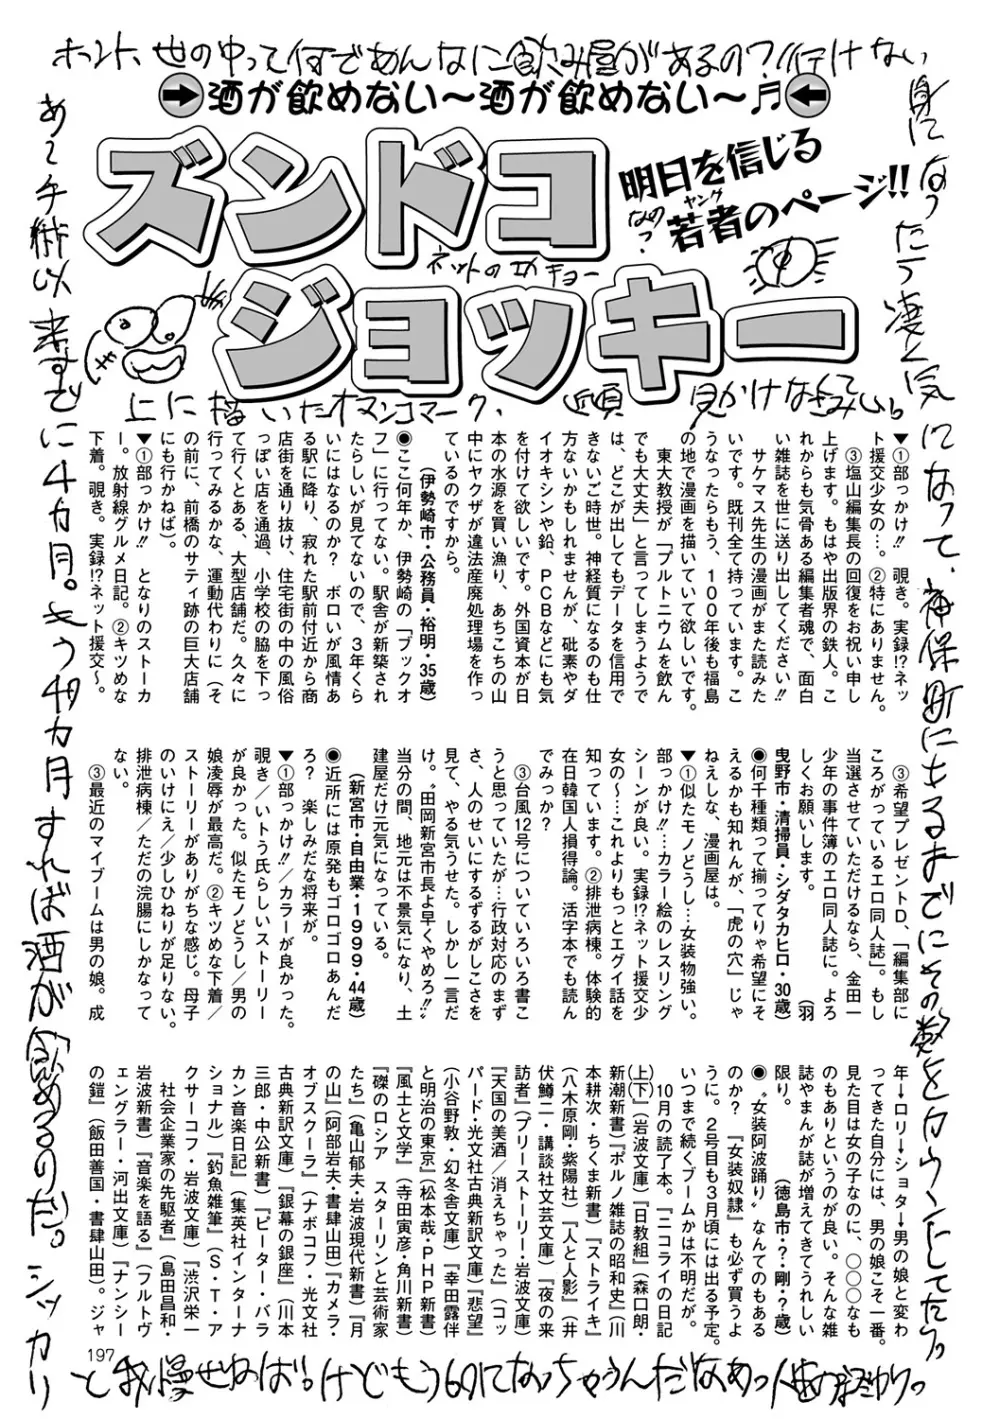 ホント、世の中って何であんなに飲み屋があるの？行けない
酒が飲めない〜酒が飲めない〜♬
ズンドコ
ジョッキー
明日を信じる
若者のページ!!
ヤング
なめ?
身になったって凄く気になって、神保町に出るまでにその数をカウントしてたっ。
上に描いたオマンコマーク、近頃見かけなくなった。
▼①部っかけ!! 覗き。実録!?ネッ
ト援交少女の…。②特にありません。
③塩山編集長の回復をお祝い申し
上げます。もはや出版界の鉄人。こ
れからも気骨ある編集者魂で、面白
い雑誌を世に送り出してください!!
サケマス先生の漫画がまた読みた
いです。既刊全て持っています。こ
うなったらもう、100年後も福島
の地で漫画を描いていて欲しいです。
東大教授が「プルトニウムを飲ん
でも大丈夫」と言ってしまうようで
は、どこが出してもデータを信用で
きないご時世。神経質になるのも仕
方ないかもしれませんが、砒素やダ
イオキシンや鉛、PCBなどにも気
を付けて欲しいです。外国資本が日
本の水源を買い漁り、あちこちの山
中にヤクザが違法産廃処理場を作っ
ているのですから。
（伊勢崎市・公務員・裕明・35歳）
◉ここ何年か、伊勢崎の「ブックオ
フ」に行ってない。駅舎が新築され
たらしいが見てないので、3年くら
いにはなるのか？ ボロいが風情あ
る駅に降り、寂れた駅前付近から商
店街を通り抜け、住宅街の中の風俗
っぽい店を通過、小学校の脇を下っ
て行くとある、大型店舗だ。久々に
行ってみるかな、運動代わりに（そ
の前に、前橋のサティ跡の巨大店舗
にも行かねば）。
▼①部っかけ!! となりのストーカ
ー。放射線グルメ日記。②キツめな
下着。覗き。実録!?ネット援交〜。
③希望プレゼントD、「編集部に
ころがっているエロ同人誌」。もし
当選させていただけるなら、金田一
少年の事件簿のエロ同人誌に。よろ
しくお願いします。（羽
曳野市・清掃員・シダタカヒロ・30歳）
◉何千種類って揃ってりゃ希望にそ
えるかも知れんが、「虎の穴」じゃ
ねえしな、漫画屋は。
▼①似たモノどうし…女装物強い。
部っかけ!!…カラー絵のレスリング
シーンが良い。実録!?ネット援交少
女の〜…これよりもっとエグイ話を
知っています。②排泄病棟。体験的
在日韓国人損得論。活字本でも読ん
でみっか？
③台風12号についていろいろ書こ
うと思っていたが…行政対応のまず
さ、人のせいにするずるがしこさを
見て、やる気うせた。しかし一言だ
け。〝田岡新宮市長よ早くやめろ!!〟
当分の間、地元は不景気になり、土
建屋だけ元気になっている。
（新宮市・自由業・1999・44歳）
◉近所には原発もゴロゴロあんだ
ろ？ 楽しみだな将来が。
▼①部っかけ!!／カラーが良かった。
覗き／いトう氏らしいストーリー
が良かった。似たモノどうし／男の
娘凌辱が最高だ。②キツめな下着／
ストーリーがありがちな感じ。母子
のいけにえ／少しひねりが足りない。
排泄病棟／ただの浣腸にしかなって
ない。
③最近のマイブームは男の娘。成
年→ロリ→ショタ→男の娘と変わ
ってきた自分には、男の娘こそ一番。
見た目は女の子なのに、◯◯◯なも
のもありというのが良い。そんな雑
誌やまんが誌が増えてきてうれしい
限り。（徳島市・?・剛・?歳）
◉〝女装阿波踊り〟なんてのもある
のか？『女装奴隷』も必ず買うよ
うに。2号目も3月頃には出る予定。
いつまで続くブームかは不明だが。
10月の読了本。『ニコライの日記
（上下）』（岩波文庫）『日教組』（森口朗・
新潮新書）『ポルノ雑誌の昭和史』（川
本耕次・ちくま新書）『ストライキ』
（八木原剛・紫陽社）『人と人影』（井
伏鱒二・講談社文芸文庫）『夜の来
訪者』（プリーストリー・岩波文庫）
『天国の美酒／消えちゃった』（コッ
パード・光文社古典新訳文庫）『悲望』
（小谷野敦・幻冬舎文庫）『幸田露伴
と明治の東京』（松本哉・PHP新書）
『風土と文学』（寺田寅彦・角川新書）
『磔のロシア スターリンと芸術家
たち』（亀山郁夫・岩波現代新書）『月
の山』（阿部岩夫・書肆山田）『カメラ・
オブスクーラ』（ナボコフ・光文社
古典新訳文庫）『銀幕の銀座』（川本
三郎・中公新書）『ピーター・バラ
カン音楽日記』（集英社インターナ
ショナル）『釣魚雑筆』（S・T・ア
クサーコフ・岩波文庫）『渋沢栄一
社会企業家の先駆者』（島田昌和・
岩波新書）『音楽を語る』（フルトヴ
ェングラー・河出文庫）『ナンシー
の鎧』（飯田善国・書肆山田）。ジャ
あ〜手術以来すでに4カ月。もう4カ月すれば酒が飲めるのだ。シッカリ
197
と我慢せねば！けどもう60になっちゃうんだなあっ